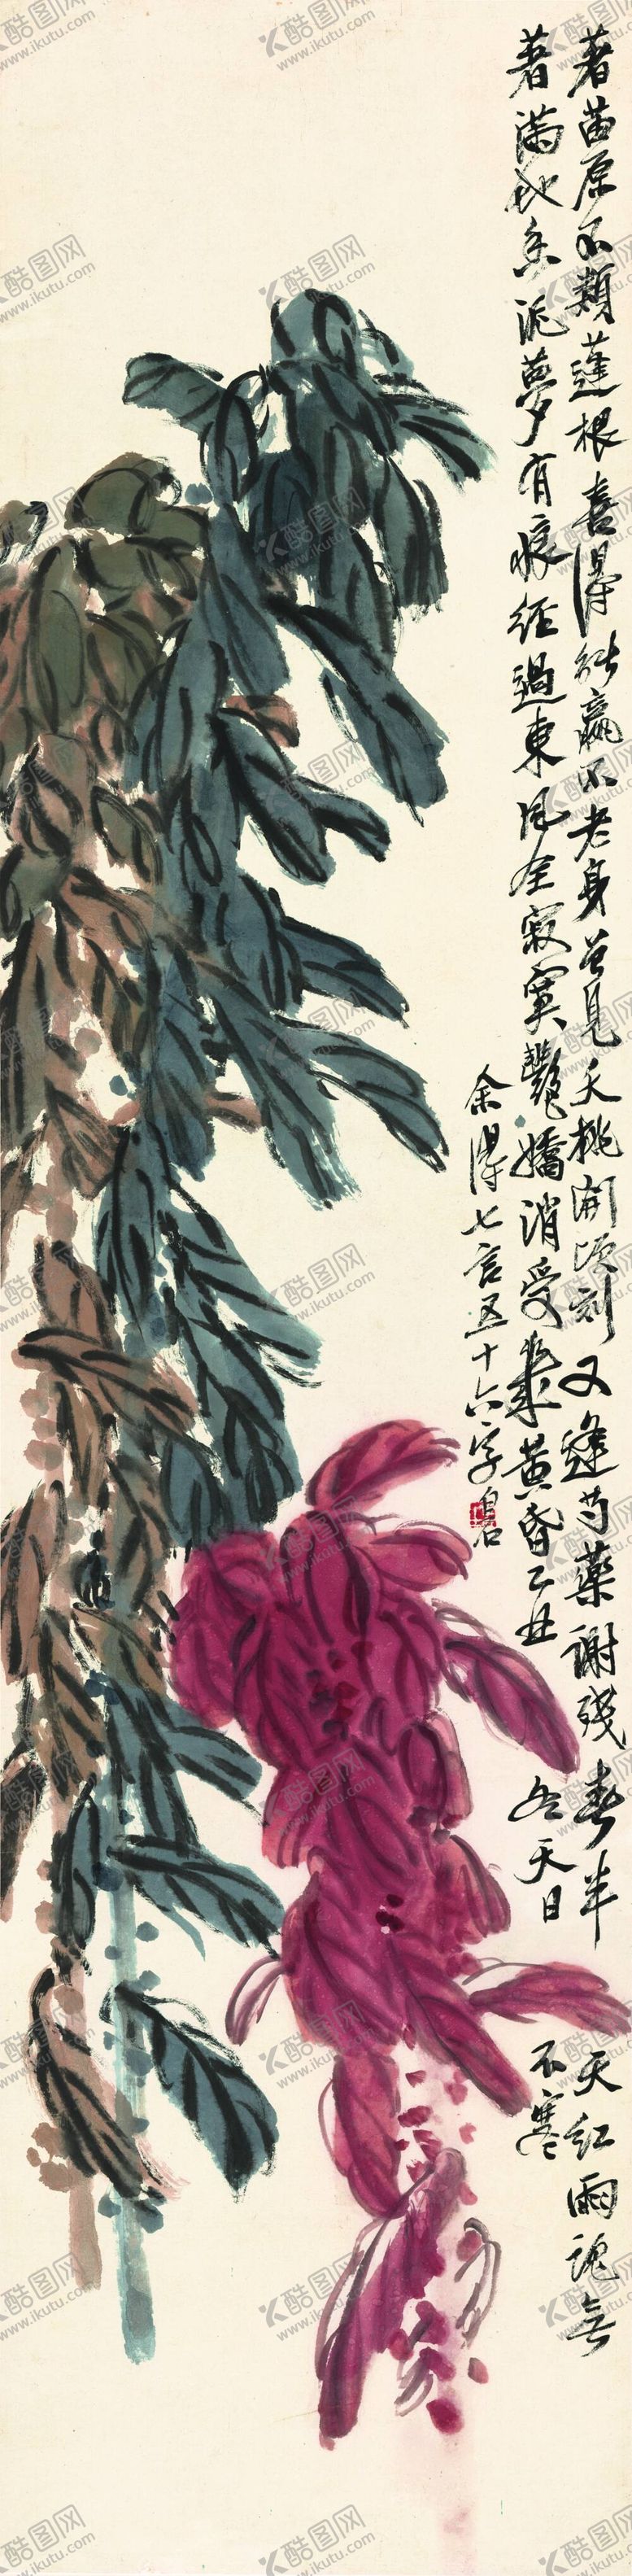 著苗原不類蓬根喜得能贏不老身曾見夭桃開頃刻又逢芍藥謝殘春半天紅雨魂無
著滿地香泥夢有痕經過東風全寂寞艷嬌消受幾黃昏乙丑冬天日不寒
余得七言五十六字白石
酷图网
www.ikutu.com